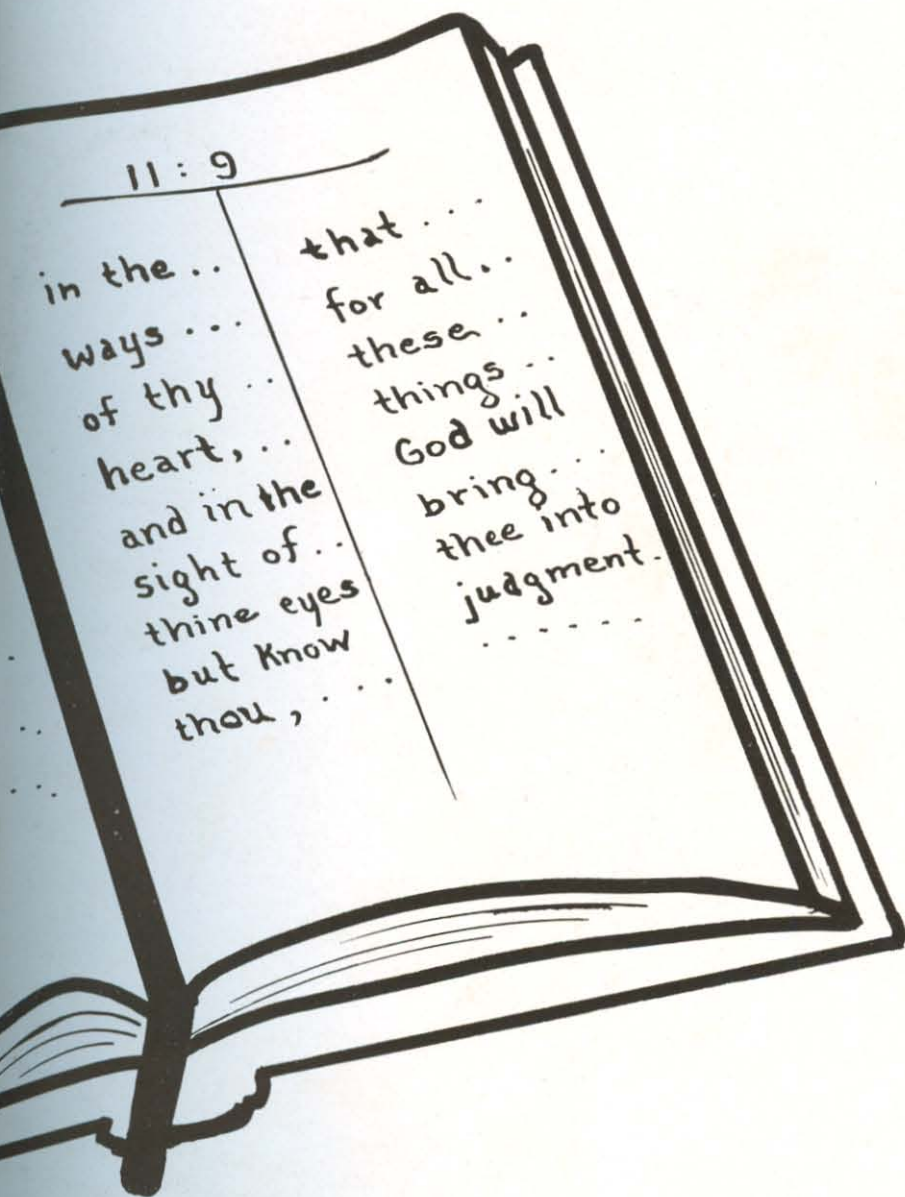 11 : 9
in the ..
ways ...
of thy ..
heart, ..
and in the
sight of ..
thine eyes
but know
thou, ....
that ...
for all..
these ..
things ..
God will
bring ...
thee into
judgment.
......